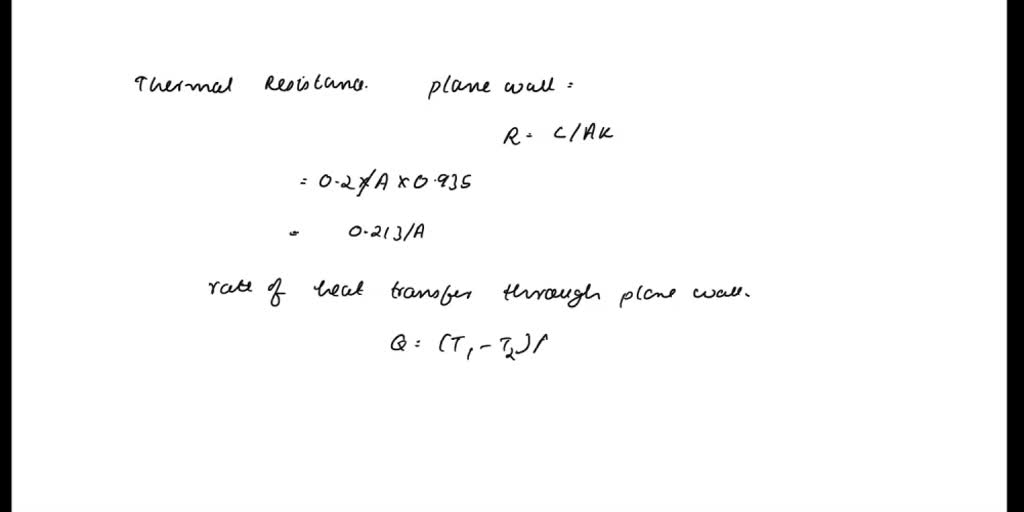 Thermal Resistance. plane wall =
R = C/AK
= 0.2/A x 0.935
= 0.213/A
rate of heat transfer through plane wall.
Q = (T1 - T2)/